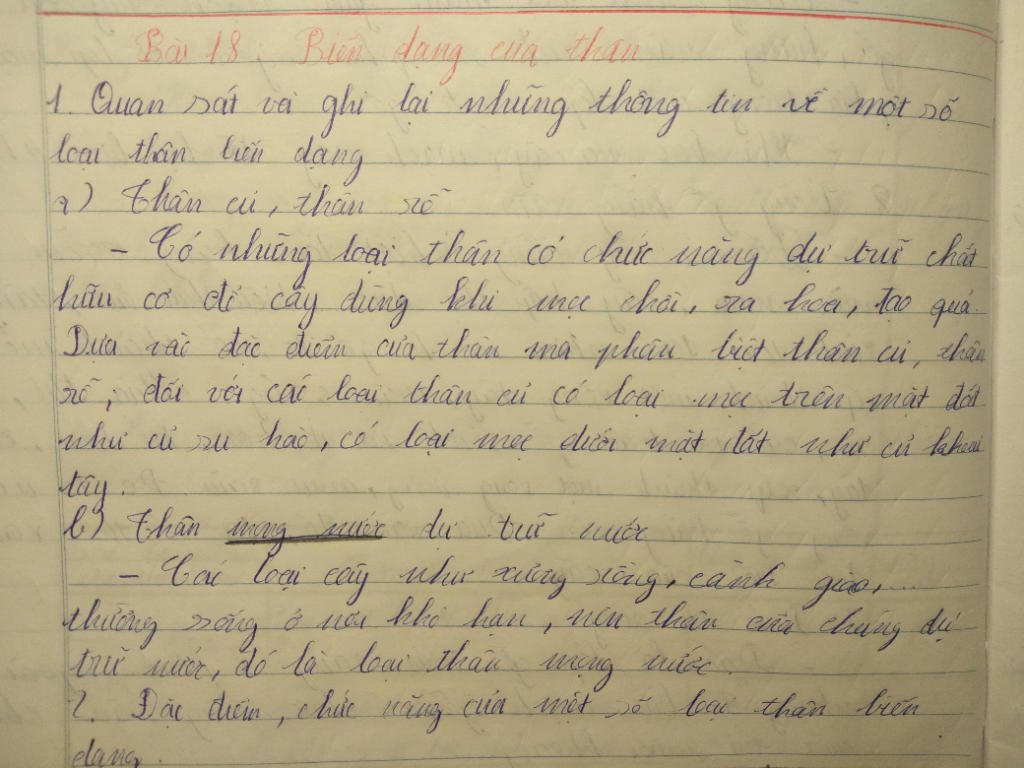 Bài 18: Biến dạng của thân
1. Quan sát và ghi lại những thông tin về một số
loại thân biến dạng
a) Thân củ, thân rễ
- Có những loại thân có chức năng dự trữ chất
hữu cơ để cây dùng khi mọc chồi, ra hoa, tạo quả.
Dựa vào đặc điểm của thân mà phân biệt thân củ, thân
rễ, đối với các loại thân củ có loại mọc trên mặt đất
như củ su hào, có loại mọc dưới mặt đất như củ khoai
tây.
b) Thân mọng nước dự trữ nước
- Các loại cây như xương rồng, cành giao,...
thường sống ở nơi khô hạn, nên thân của chúng dự
trữ nước, đó là loại thân mọng nước.
2. Đặc điểm, chức năng của một số loại thân biến
dạng.